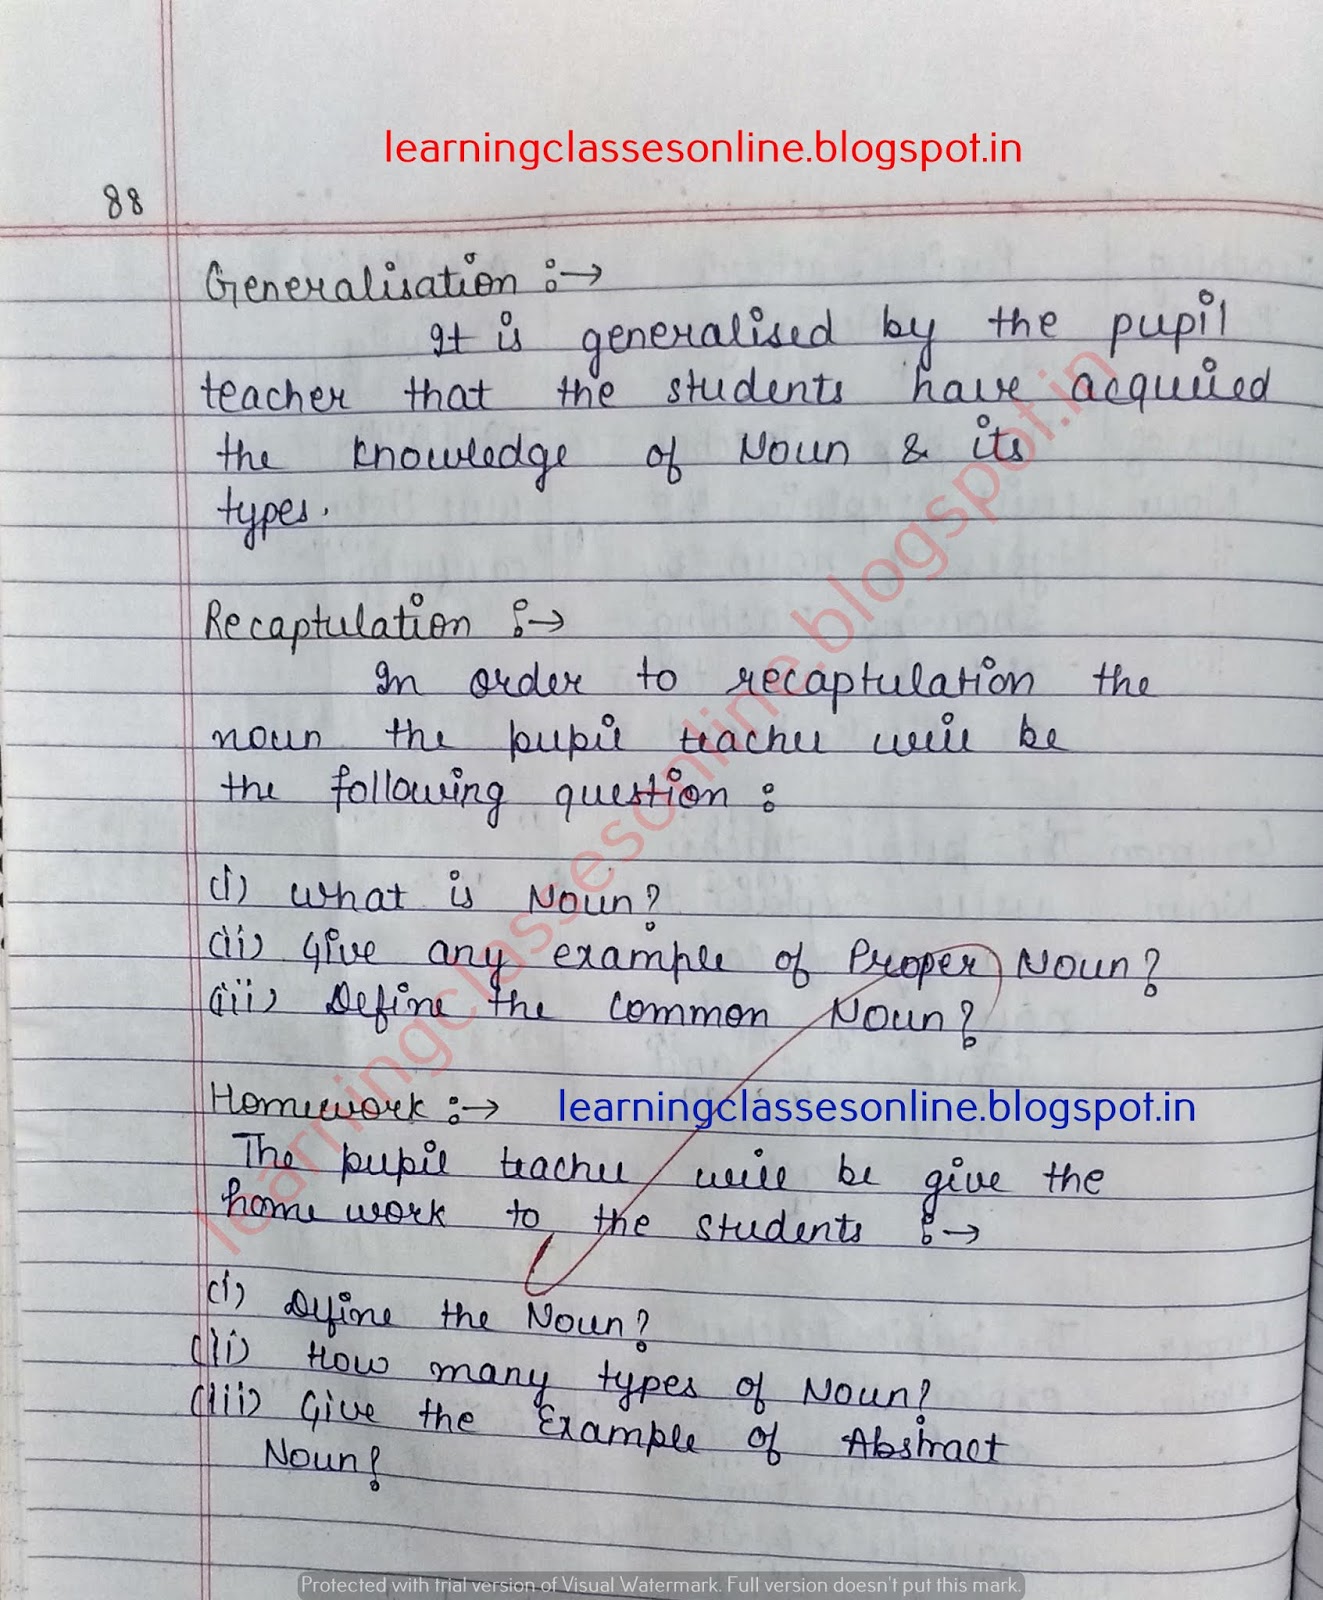 learningclassesonline.blogspot.in
88
Generalisation :→
It is generalised by the pupil
teacher that the students have acquired
the knowledge of Noun & its
types.
Recaptulation :→
In order to recaptulation the
noun the pupil teacher will be
the following question :
(i) What is Noun?
(ii) Give any example of Proper Noun?
(iii) Define the common Noun?
Homework :→ learningclassesonline.blogspot.in
The pupil teacher will be give the
home work to the students :→
(i) Define the Noun?
(ii) How many types of Noun?
(iii) Give the Example of Abstract
Noun?
learningclassesonline.blogspot.in
Protected with trial version of Visual Watermark. Full version doesn't put this mark.